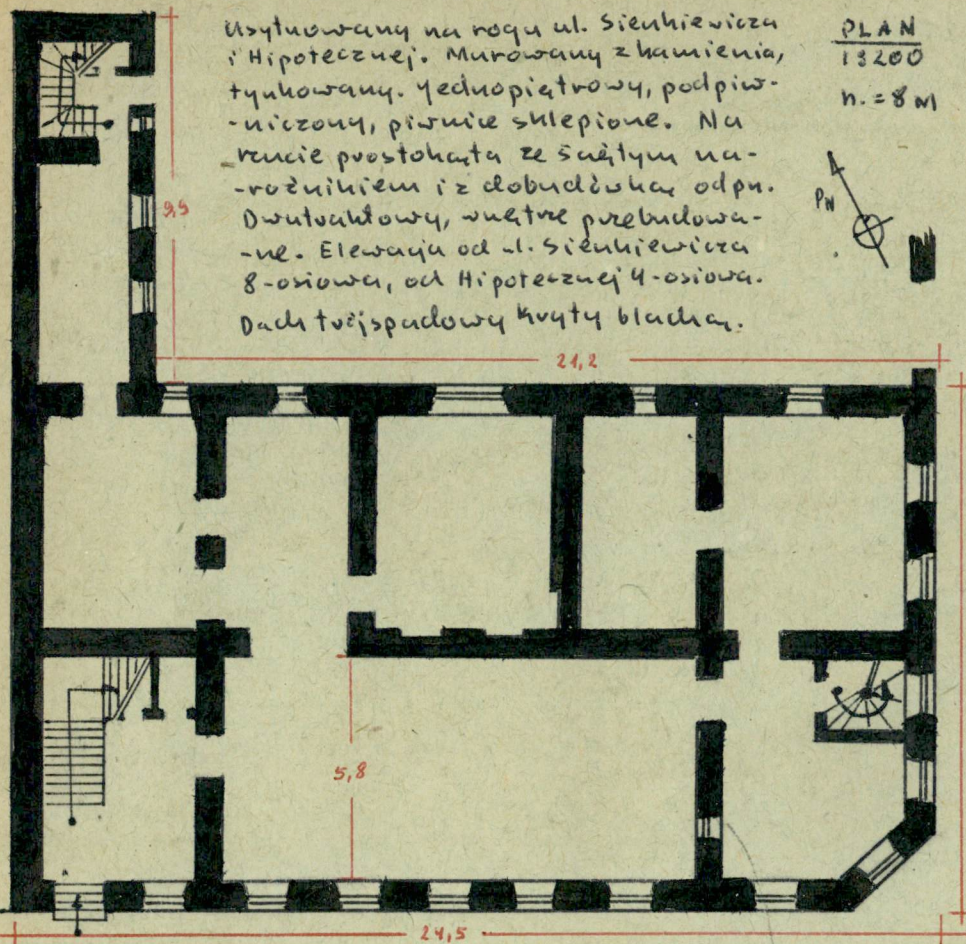 Usytuowany na rogu ul. Sienkiewicza
i Hipotecznej. Murowany z kamienia,
tynkowany. Jednopiętrowy, podpiw-
-niczony, piwnice sklepione. Na
rzucie prostokąta ze ściętym na-
-rożnikiem i z dobudówką od pn.
Dwutraktowy, wnętrze przebudowa-
-ne. Elewacja od ul. Sienkiewicza
8-osiowa, od Hipotecznej 4-osiowa.
Dach trójspadowy kryty blachą.
PLAN
1:200
h. = 8 M
PN
9,9
21,2
5,8
24,5